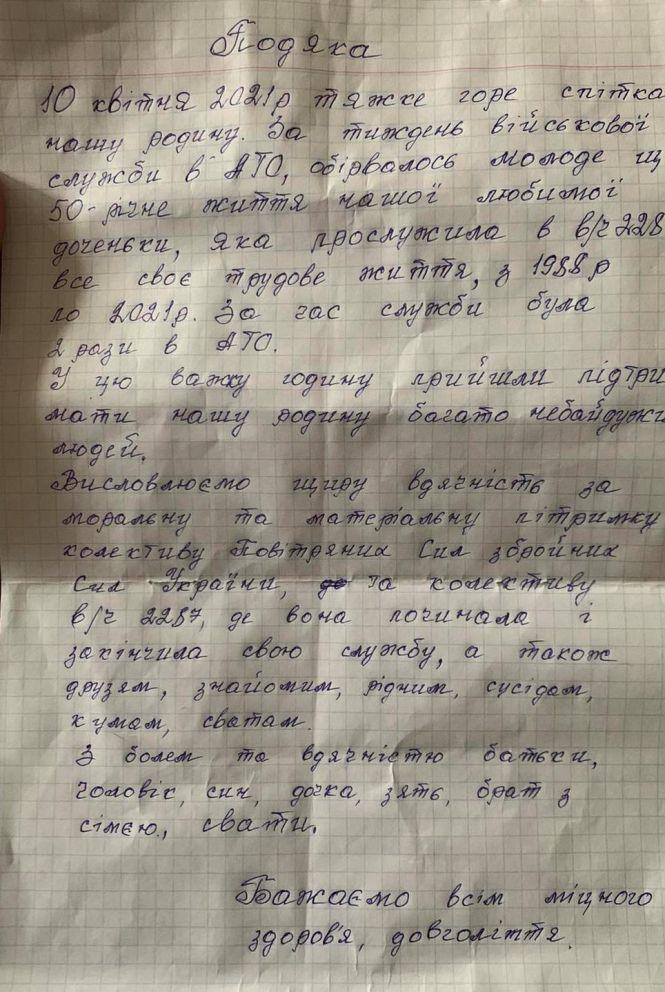 Подяка
10 квітня 2021р тяжке горе спітка
нашу родину. За тиждень військової
служби в АТО, обірвалось молоде ще
50-річне життя нашої любимої
доченьки, яка прослужила в в/ч 228
все своє трудове життя, з 1988 р
по 2021р. За час служби була
2 рази в АТО.
У цю важку годину прийшли підтри
мати нашу родину багато небайдужи
людей.
Висловлюємо щиру вдячність за
моральну та матеріальну пітримку
колективу Повітряних Сил збройних
Сил України, та колективу
в/ч 2287, де вона починала і
закінчила свою службу, а також
друзям, знайомим, рідним, сусідам,
кумам, сватам.
З болем та вдячністю батьки,
чоловік, син, дочка, зять, брат з
сімєю, свати.
Бажаємо всім міцного
здоров'я, довголіття.